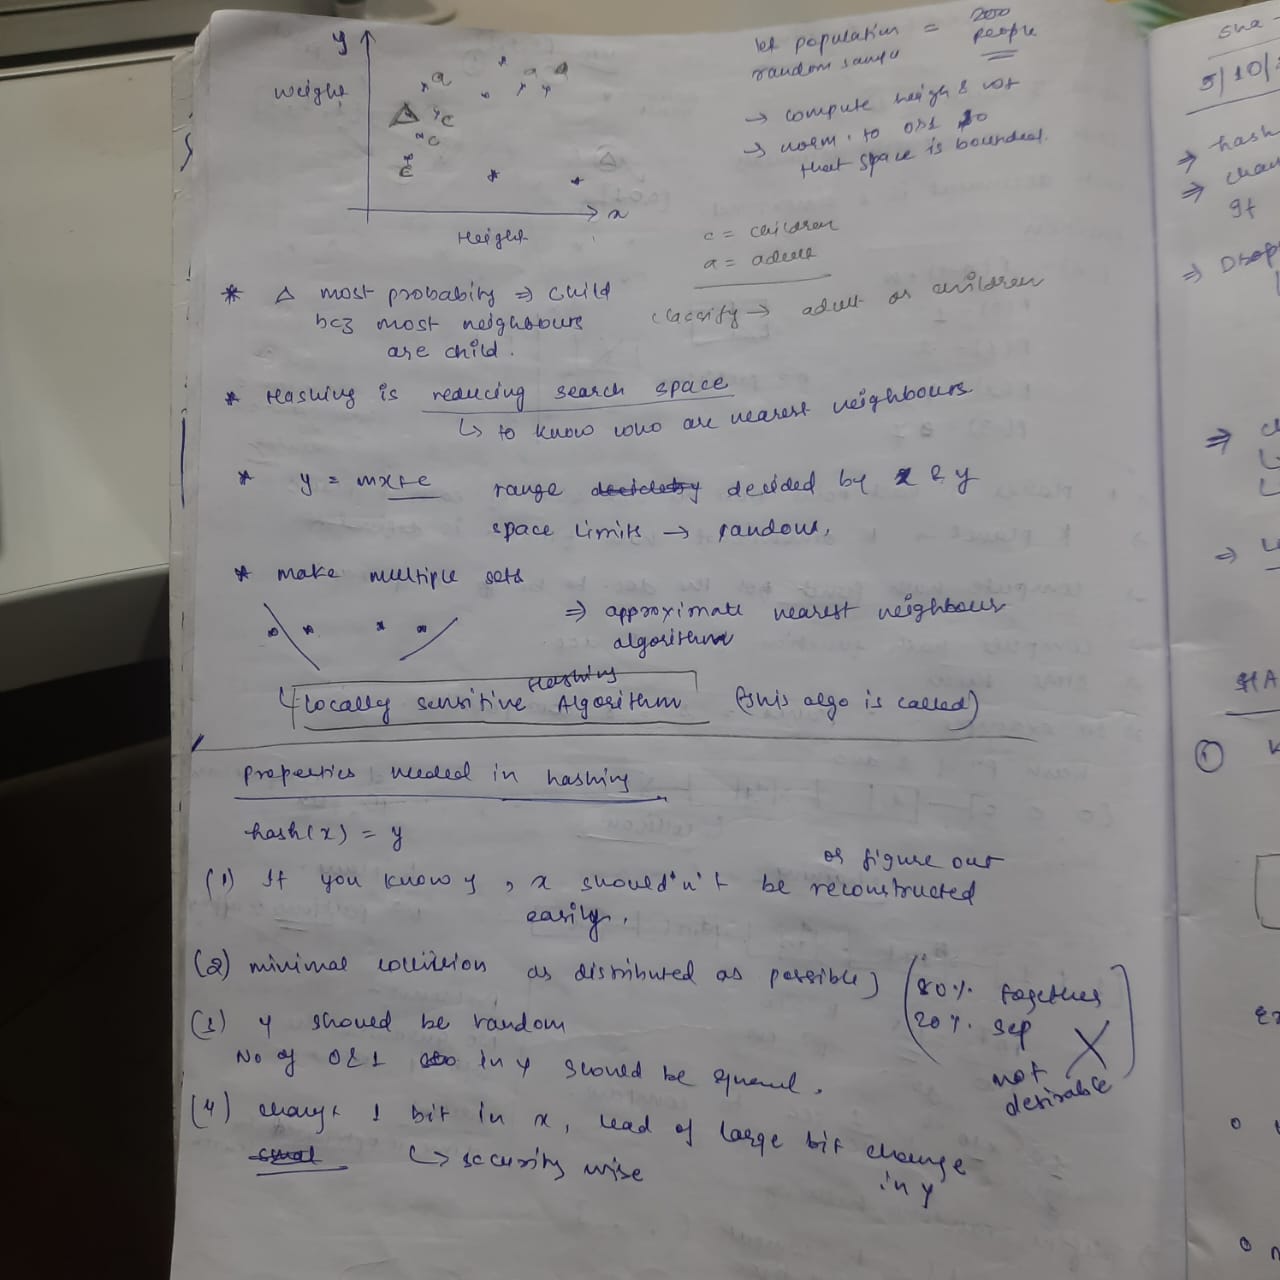 y
weight
a
a
a
c
c
c
x
Height
let population = 2000 people
random sample
→ compute heigh & wt
→ norm. to 0&1 so
that space is bounded.
c = children
a = adult
classify → adult or children
* △ most probabity ⇒ child
bcz most neighbours
are child.
* Hashing is reducing search space
↳ to know who are nearest neighbours
* y = mx+c range decided by x & y
space limits → random,
* make multiple sets
⇒ approximate nearest neighbour
algorithm
Hashing
↳ Locally sensitive Algorithm (this algo is called)
properties needed in hashing
hash(x) = y
or figure out
(1) If you know y, x should'n't be reconstructed
easily.
(2) minimal collision as distributed as possible) (80% together
20% sep
not
desirable
(3) y should be random
No of 0&1 in y should be equal.
(4) change 1 bit in x, lead of large bit change
in y
↳ security wise
5/10/
⇒ hash
⇒
gt
⇒ Drop
①